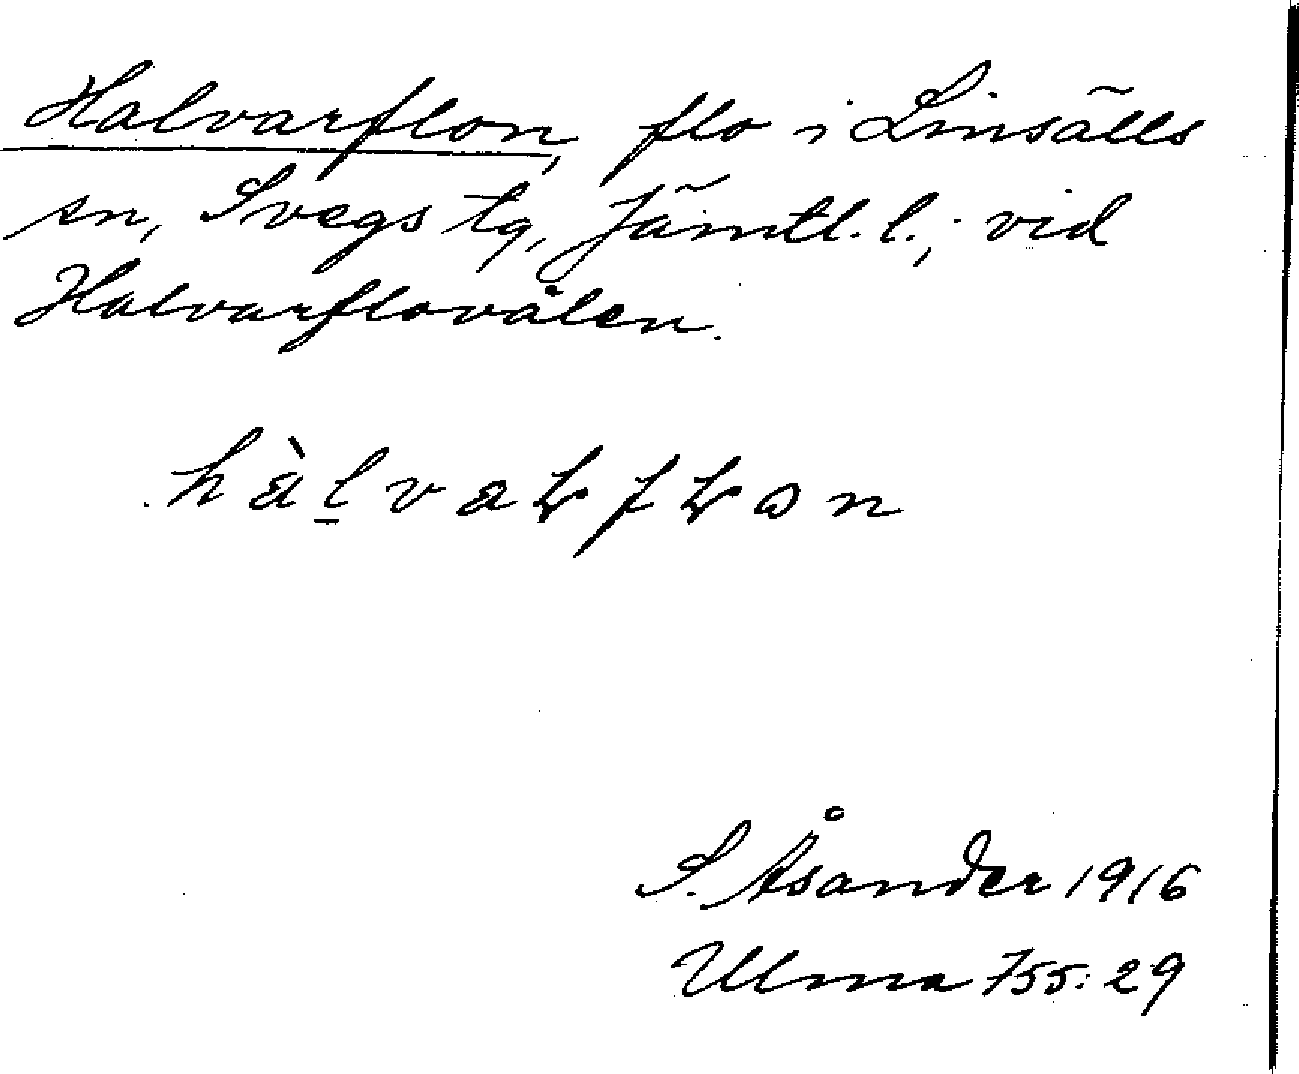 Halvarflon, flo i Linsälls
sn, Svegs tg, Jämtl. l.; vid
Halvarflovålen.
hàl̠vaɽfɽɷn
S. Åsander 1916
Ulma 755:29